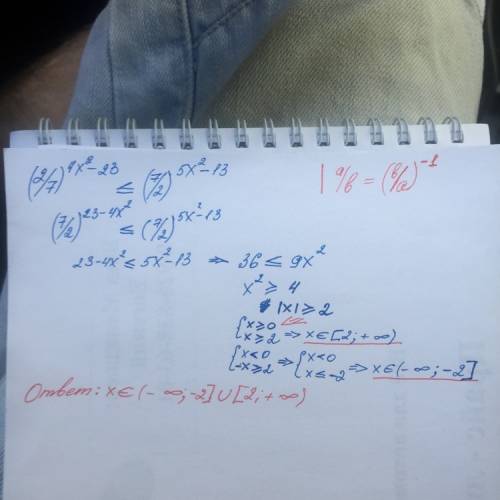 (2/7)^4x²-23 ≤ (7/2)^5x²-13
| a/b = (b/a)^-1
(7/2)^23-4x² ≤ (7/2)^5x²-13
23-4x² ≤ 5x²-13 ⇒ 36 ≤ 9x²
x² ≥ 4
|x| ≥ 2
{x≥0 x≥2 ⇒ x∈[2;+∞)
{x<0 -x≥2 ⇒ {x<0 x≤-2 ⇒ x∈(-∞;-2]
Ответ: x∈(-∞;-2]∪[2;+∞)